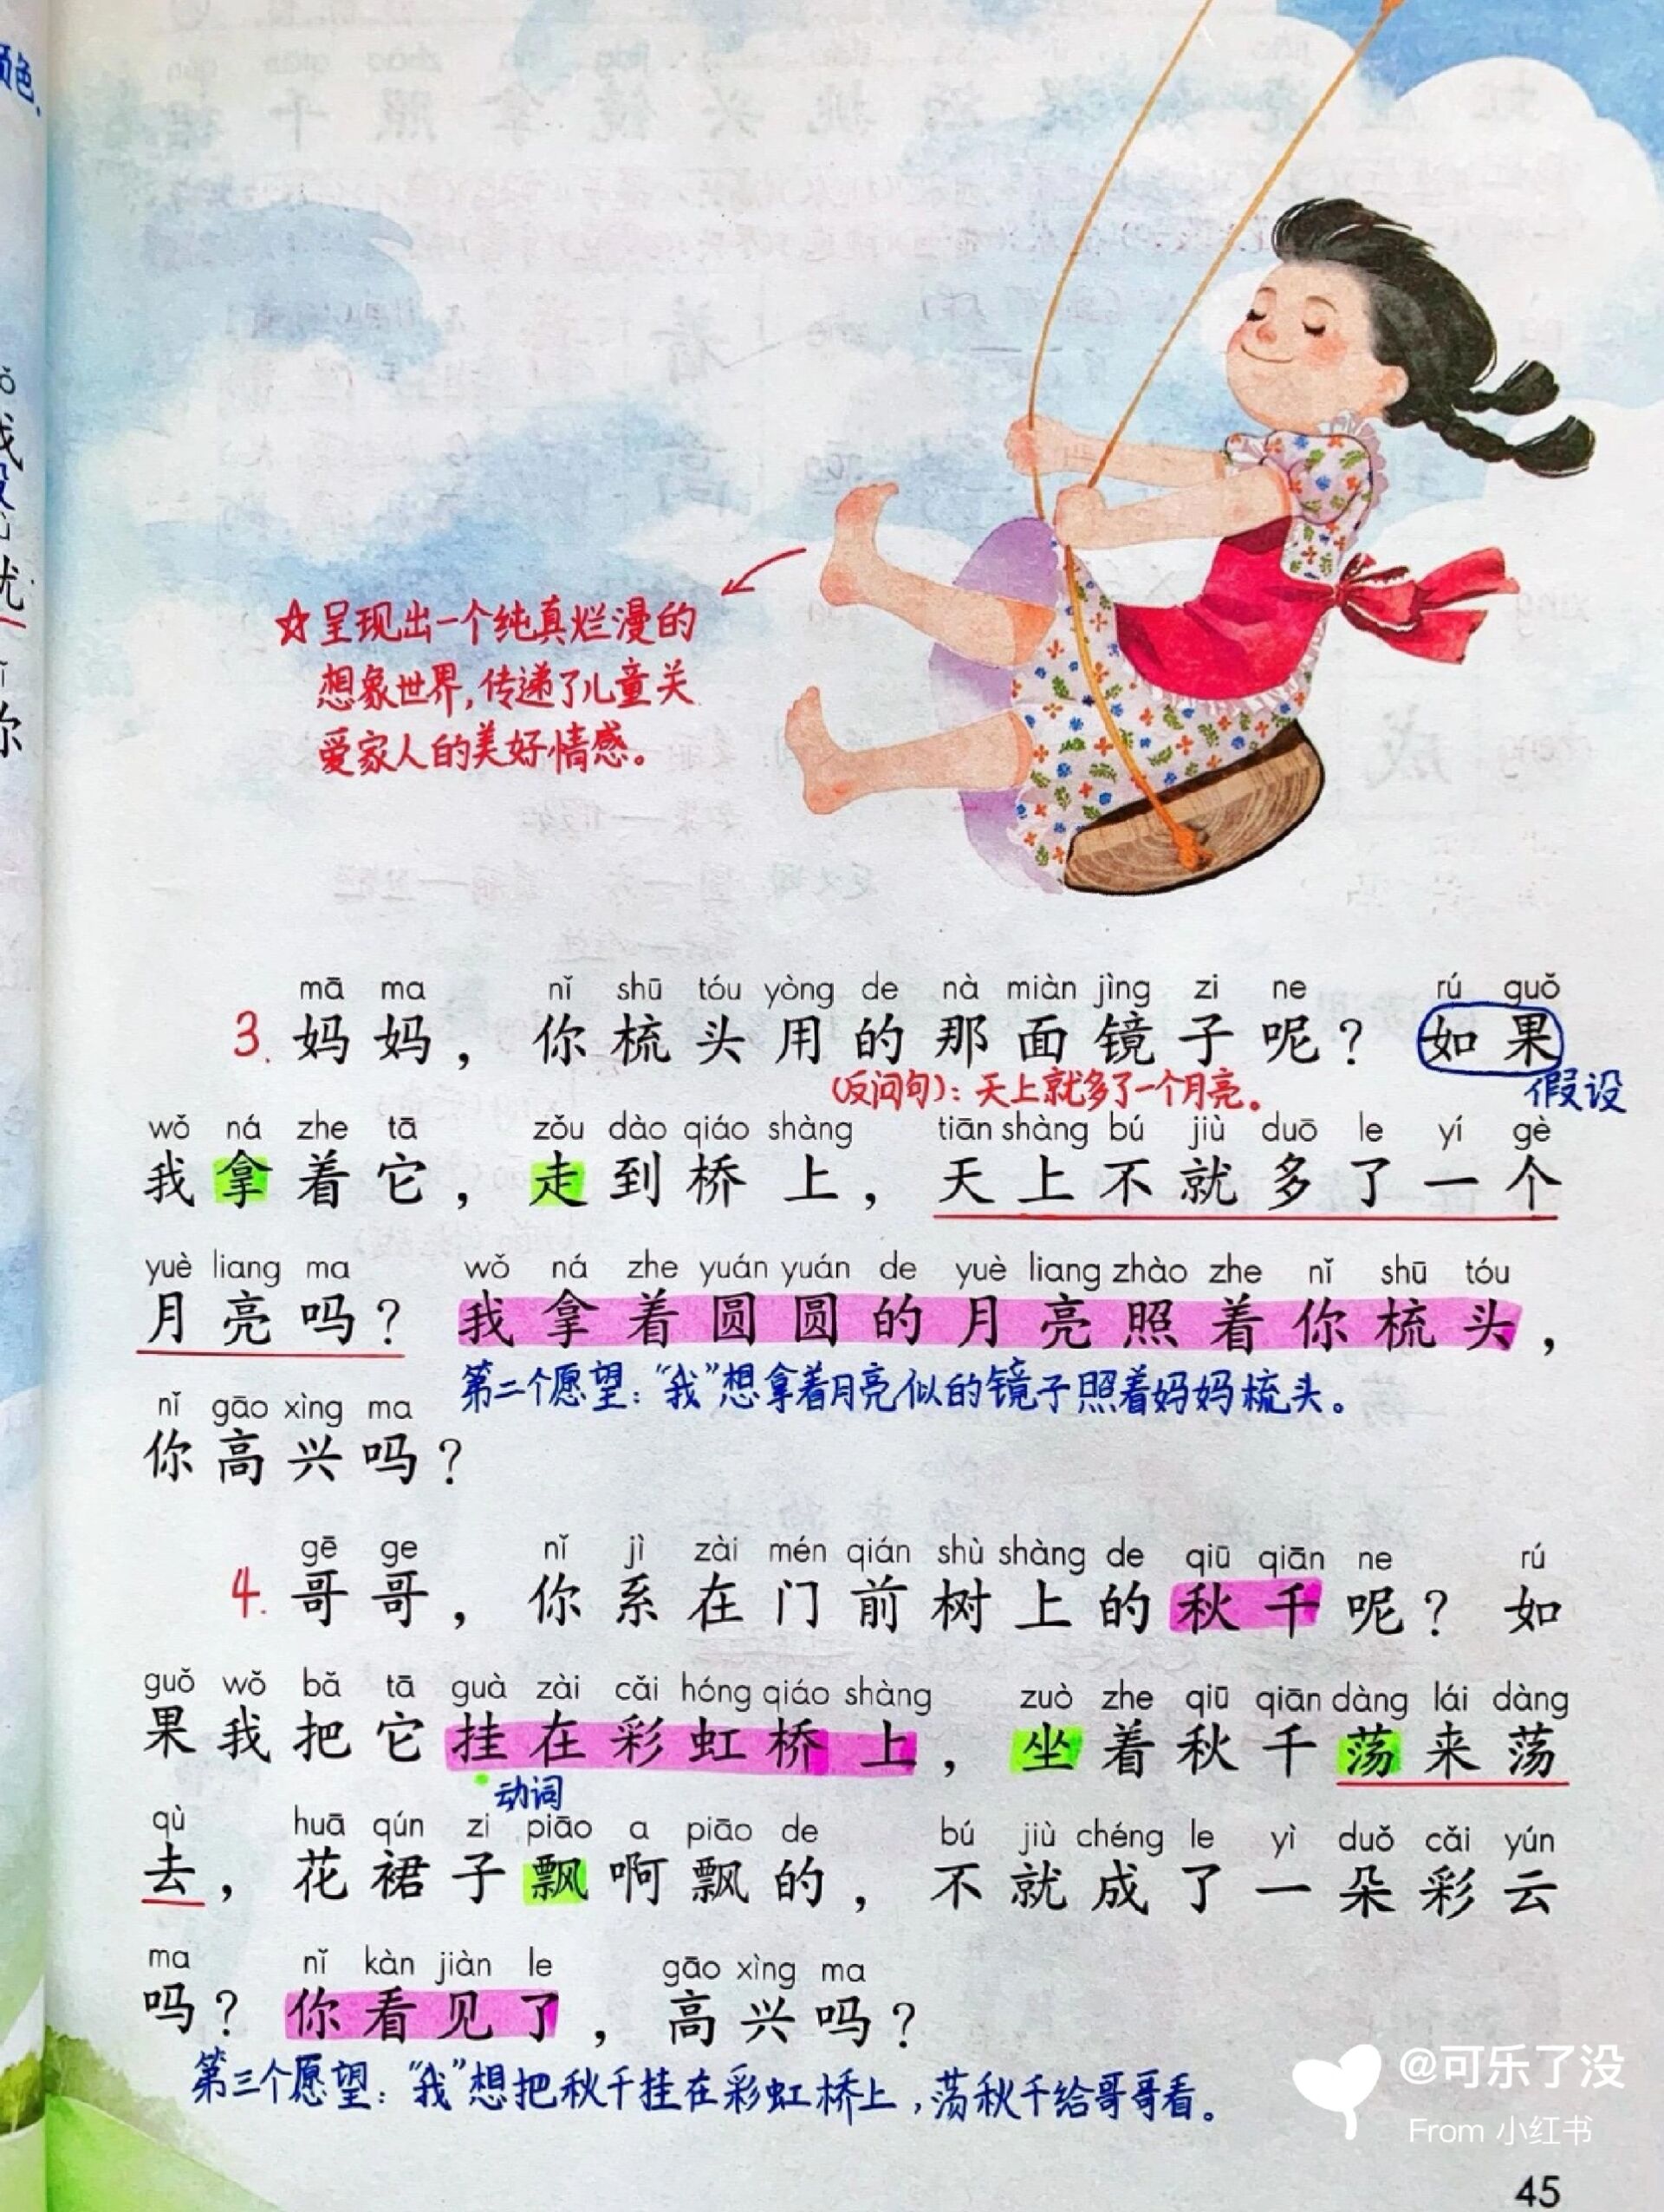 颜色、
☆呈现出一个纯真烂漫的
想象世界,传递了儿童关
爱家人的美好情感。
mā ma nǐ shū tóu yòng de nà miàn jìng zi ne rú guǒ
3. 妈妈，你梳头用的那面镜子呢？如果
(反问句)：天上就多了一个月亮。
假设
wǒ ná zhe tā zǒu dào qiáo shàng tiān shàng bú jiù duō le yí gè
我拿着它，走到桥上，天上不就多了一个
yuè liang ma wǒ ná zhe yuán yuán de yuè liang zhào zhe nǐ shū tóu
月亮吗？我拿着圆圆的月亮照着你梳头，
第二个愿望：“我”想拿着月亮似的镜子照着妈妈梳头。
nǐ gāo xìng ma
你高兴吗？
gē ge nǐ jì zài mén qián shù shàng de qiū qiān ne rú
4. 哥哥，你系在门前树上的秋千呢？如
guǒ wǒ bǎ tā guà zài cǎi hóng qiáo shàng zuò zhe qiū qiān dàng lái dàng
果我把它挂在彩虹桥上，坐着秋千荡来荡
动词
qù huā qún zi piāo a piāo de bú jiù chéng le yì duǒ cǎi yún
去，花裙子飘啊飘的，不就成了一朵彩云
ma nǐ kàn jiàn le gāo xìng ma
吗？你看见了，高兴吗？
第三个愿望：“我”想把秋千挂在彩虹桥上,荡秋千给哥哥看。
@可乐了没
From 小红书
45